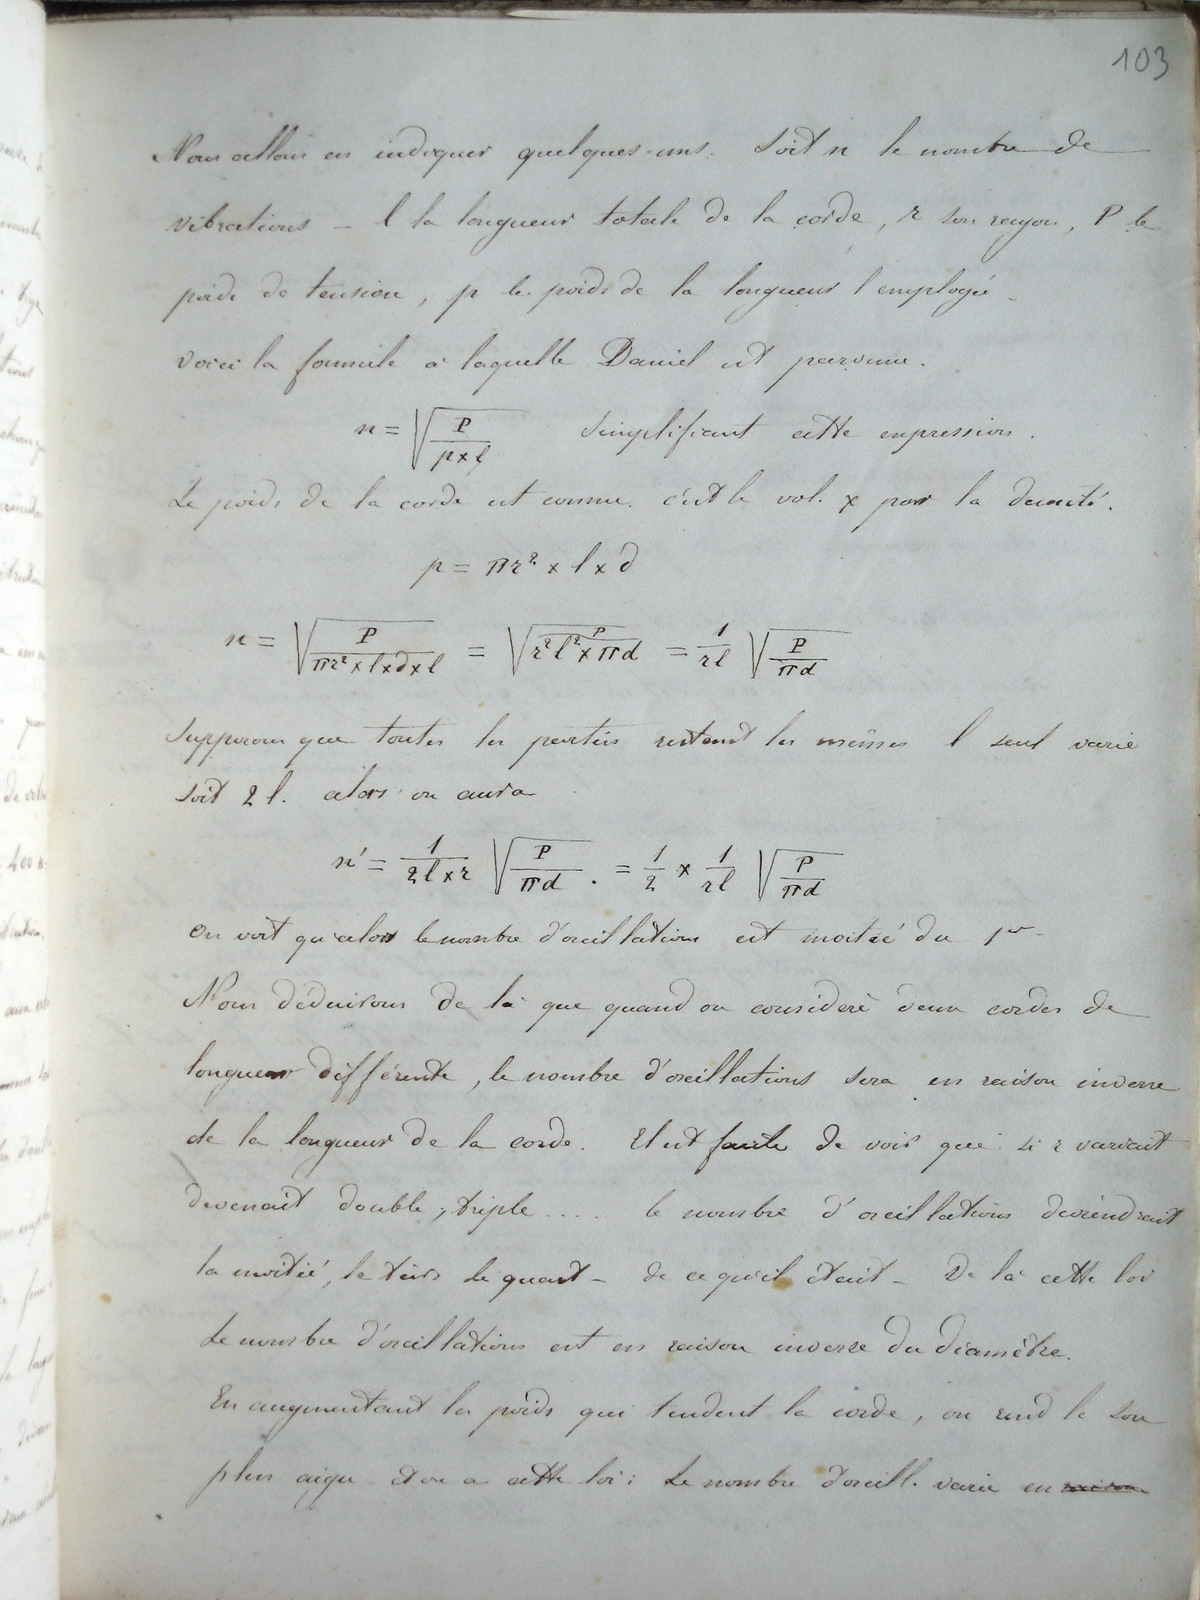 103
Nous allons en indiquer quelques-uns. Soit n le nombre de
vibrations - l la longueur totale de la corde, r son rayon, P le
poids de tension, p le poids de la longueur l employé.
Voici la formule à laquelle Daniel est parvenu.
n = √(P / p×l) Simplifiant cette expression.
Le poids de la corde est connu. c'est le vol. × par la densité.
p = πr² × l × d
n = √(P / πr² × l × d × l) = √(P / r²l² × πd) = 1/rl √(P / πd)
Supposons que toutes les parties restant les mêmes l seul varie
soit 2 l. alors on aura
n' = 1/2l×r √(P / πd) . = 1/2 × 1/rl √(P / πd)
On voit qu'alors le nombre d'oscillations est moitié du 1er
Nous déduisons de là que quand on considère deux cordes de
longueur différente, le nombre d'oscillations sera en raison inverse
de la longueur de la corde. Il est facile de voir que si r variait
devenait double, triple .... le nombre d'oscillations deviendrait
la moitié, le tiers le quart - de ce qu'il était - De là cette loi
Le nombre d'oscillations est en raison inverse du diamètre.
En augmentant les poids qui tendent la corde, on rend le son
plus aigu et on a cette loi : Le nombre d'oscill. varie en raison